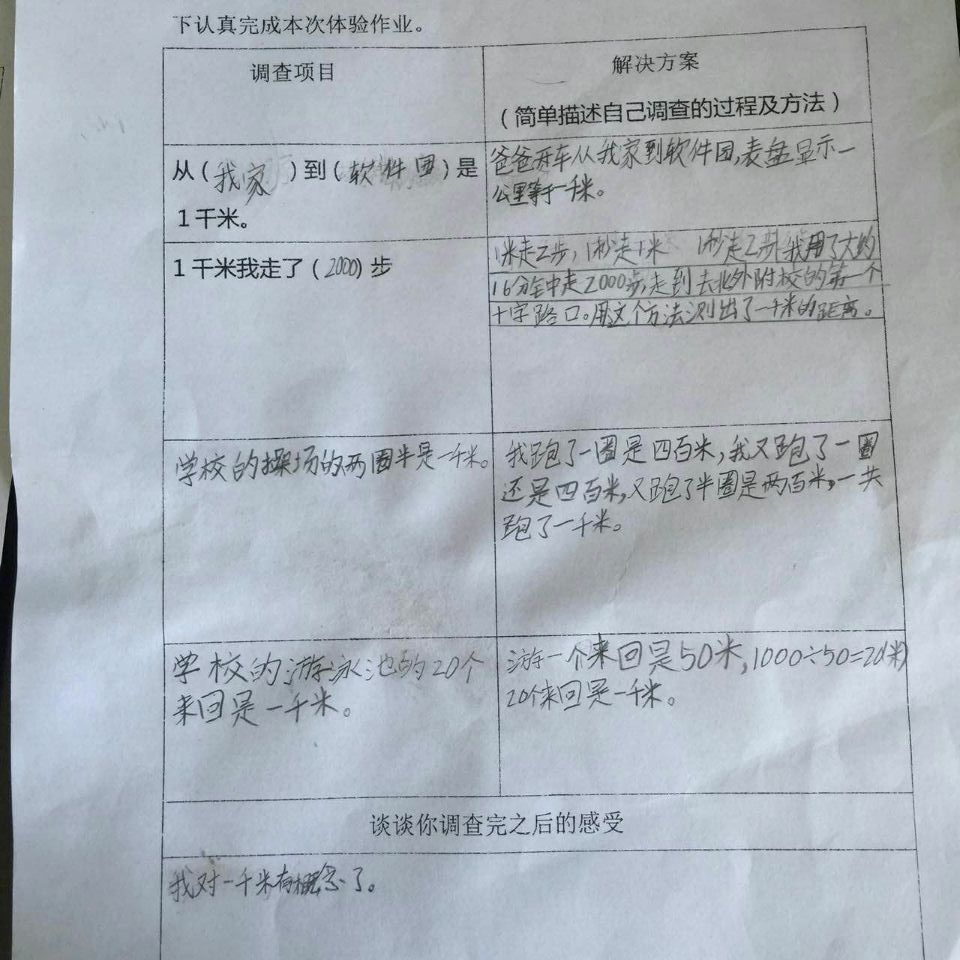 下认真完成本次体验作业。
调查项目
解决方案
(简单描述自己调查的过程及方法)
从(我家)到(软件园)是
1千米。
爸爸开车从我家到软件园,表盘显示一
公里等于一千米。
1千米我走了(2000)步
1米走2步,1秒走1米 1秒走2步我用了大约
16分钟走2000步走到去北外附校的第一个
十字路口。用这个方法测出了一千米的距离。
学校的操场的两圈半是一千米。
我跑了一圈是四百米,我又跑了一圈
还是四百米,又跑了半圈是两百米,一共
跑了一千米。
学校的游泳池的20个
来回是一千米。
游一个来回是50米,1000÷50=20(米)
20个来回是一千米。
谈谈你调查完之后的感受
我对一千米有概念了。